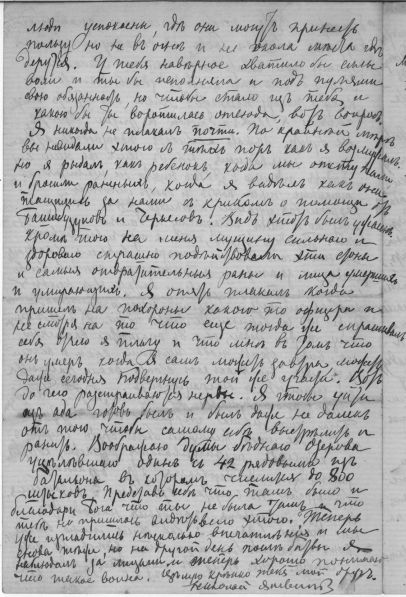 люди успокоены, гдѣ они могутъ принесть
пользу но не въ огнѣ и не около мѣста гдѣ
дерутся. У тебя навѣрное хватило бы силы
воли и ты бы исполняла и подъ пулями
свою обязанность, но чтобы стало изъ тебя и
какою бы ты воротилась оттуда, вотъ вопросъ.
Я никогда не плакалъ почти. По крайней мѣрѣ
вы не видали этого съ тѣхъ поръ какъ я возмужалъ.
но я рыдалъ какъ ребенокъ, когда мы отступали
и бросили раненыхъ, когда я видѣлъ какъ они
тащились за нами съ крикомъ о помощи отъ
Башибузуковъ и Черкесовъ. Видъ этотъ былъ ужасенъ
кромѣ того на меня мущину сильнаго и
здороваго страшно подѣйствовали эти стоны
и самыя отвратительныя раны и лица умершихъ
и умирающихъ. Я опять плакалъ когда
пришелъ на похороны какого то офицера и
не смотря на то что еще тогда же спрашивалъ
себя чего я плачу и что мнѣ въ томъ что
онъ умеръ когда я самъ можетъ завтра, можетъ
даже сегодня подвергнусь той же участи. Вотъ
до чего разстраиваются нервы. Я чтобы уйти
изъ ада готовъ былъ и былъ даже не далекъ
отъ того чтобы самому себѣ выстрѣлить и
ранить. Воображаю думы бѣднаго Озерова
уцѣлѣвшаго одинъ съ 42 рядовыми изъ
батальона въ которомъ числится до 800
штыковъ. Представь себѣ что тамъ было и
благодари Бога что ты не была тамъ и что
тебѣ не пришлось видѣть всего этого. Теперь
уже изгладились нѣсколько впечатлѣнія и мы
снова тѣже, но на другой день послѣ битвы я
наблюдалъ за лицами и теперь хорошо понимаю
что такое война. Цѣлую крѣпко тебя твой братъ
Николай